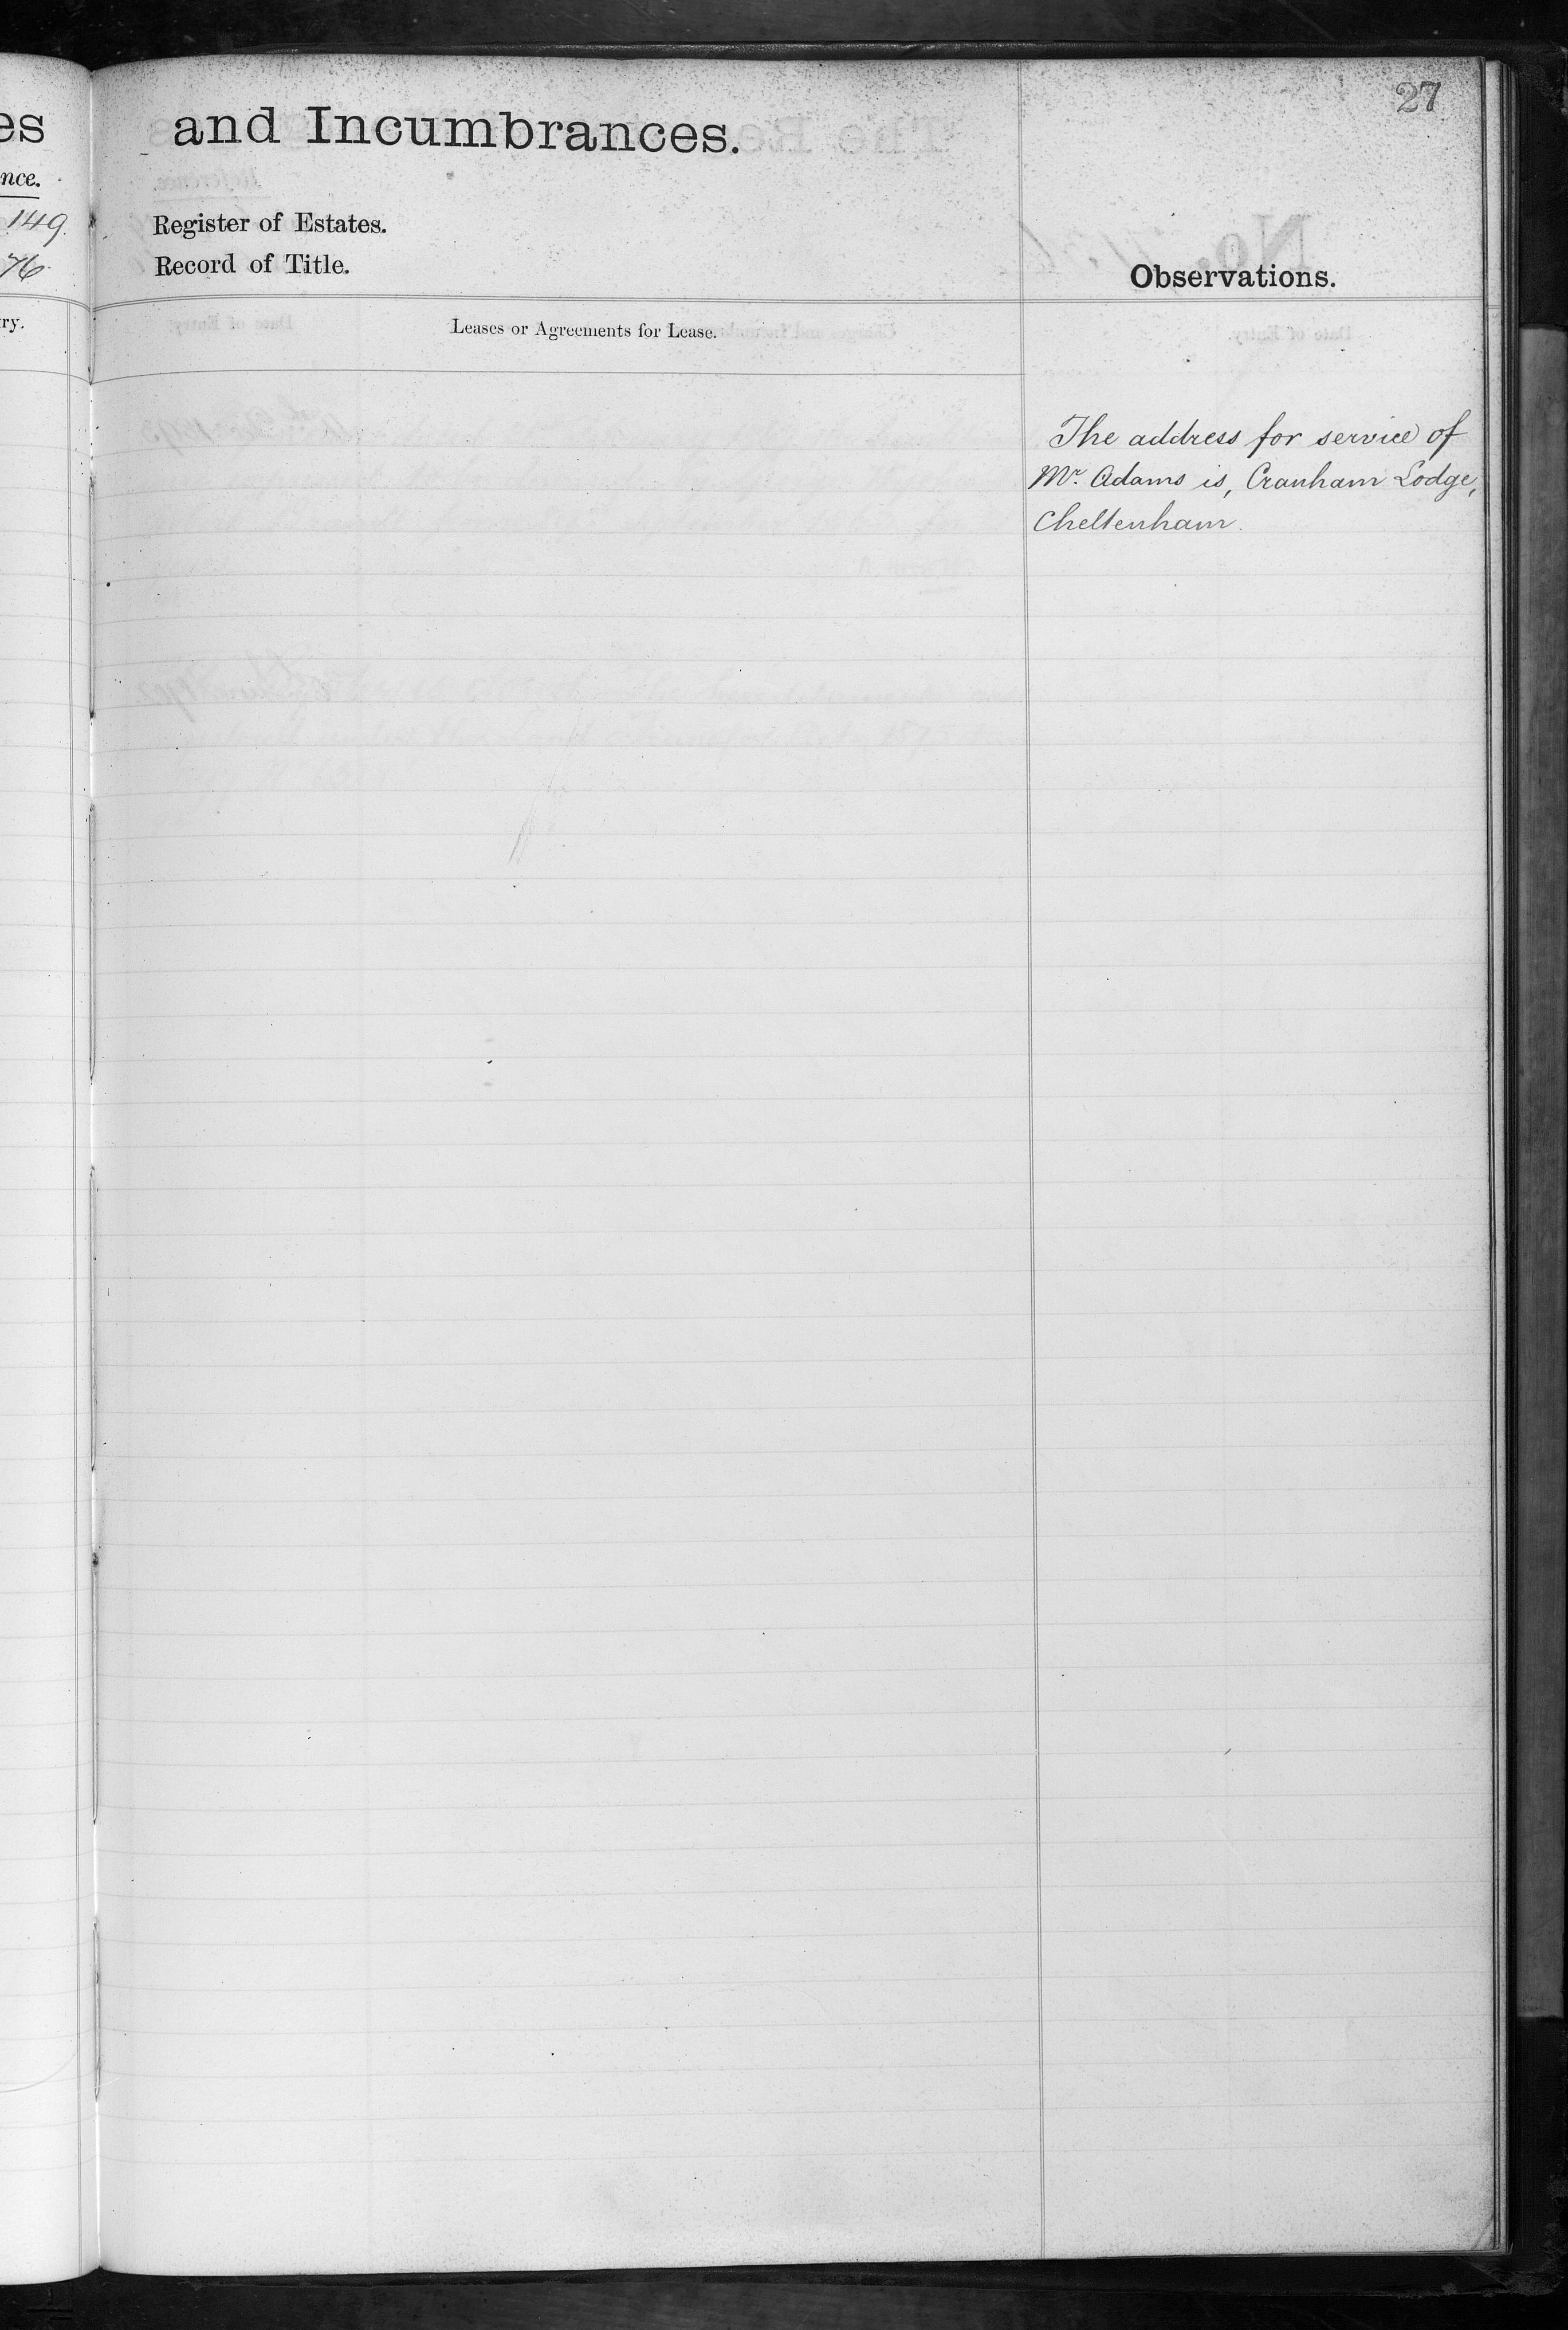 27
es and Incumbrances.
nce.
149.
76.
Register of Estates.
Record of Title.
Observations.
ry.
Leases or Agreements for Lease.
The address for service of
Mr. Adams is, Cranham Lodge,
Cheltenham.